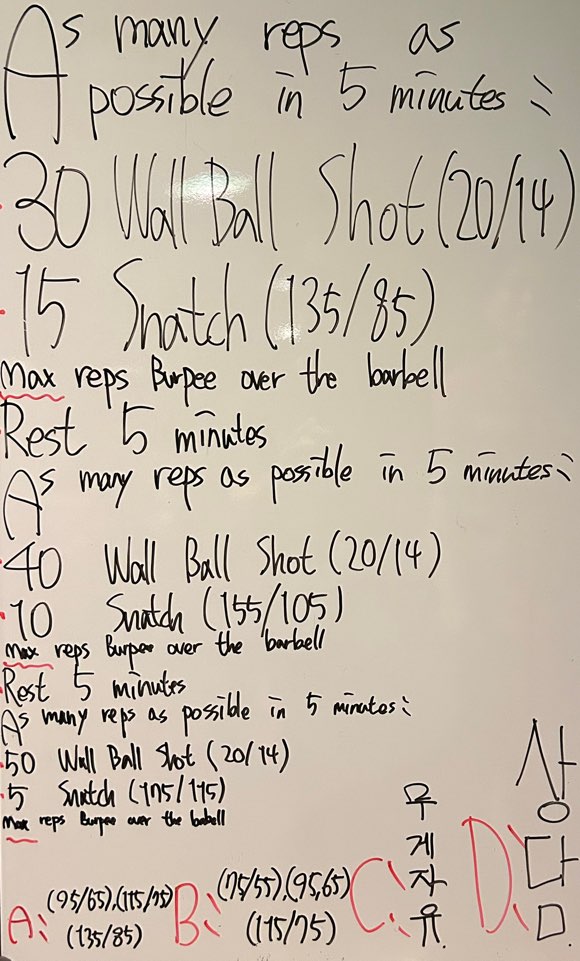 As many reps as
possible in 5 minutes:
30 Wall Ball Shot (20/14)
15 Snatch (135/85)
Max reps Burpee over the barbell
Rest 5 minutes
As many reps as possible in 5 minutes:
40 Wall Ball Shot (20/14)
10 Snatch (155/105)
Max reps Burpee over the barbell
Rest 5 minutes
As many reps as possible in 5 minutes:
50 Wall Ball Shot (20/14)
5 Snatch (175/115)
Max reps Burpee over the babell
A: (95/65),(115/75)
(135/85)
B: (75/55),(95,65)
(115/75)
C: 무게자유
D: 상담